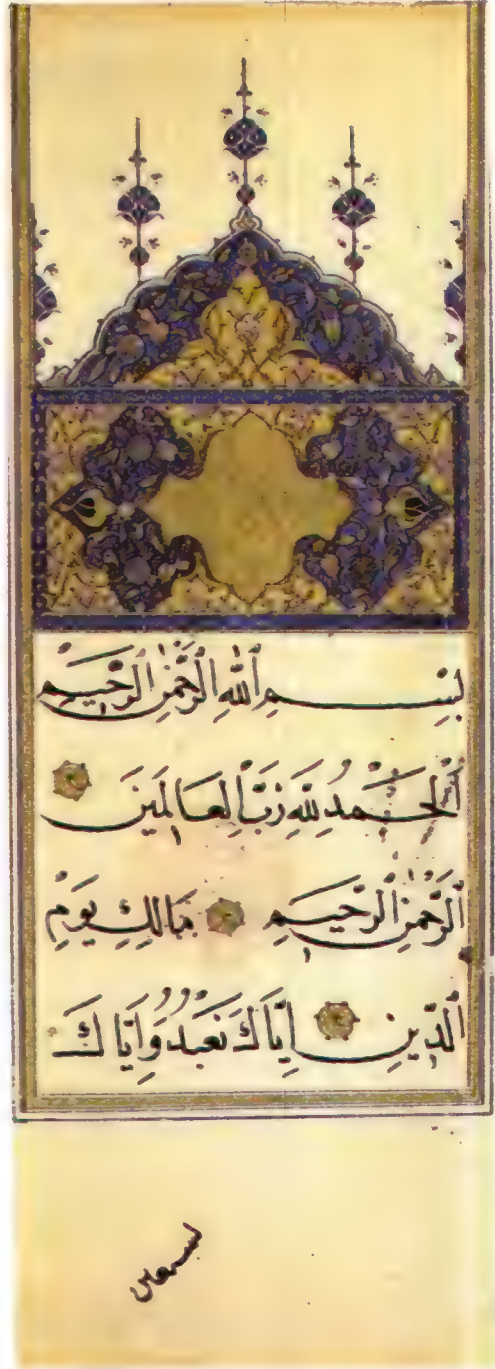 بِسْمِ اللَّهِ الرَّحْمٰنِ الرَّحِيمِ
اَلْحَمْدُ لِلّٰهِ رَبِّ الْعَالَمِينَ
الرَّحْمٰنِ الرَّحِيمِ مَالِكِ يَوْمِ
الدِّينِ اِيَّاكَ نَعْبُدُ وَاِيَّاكَ
نستعين